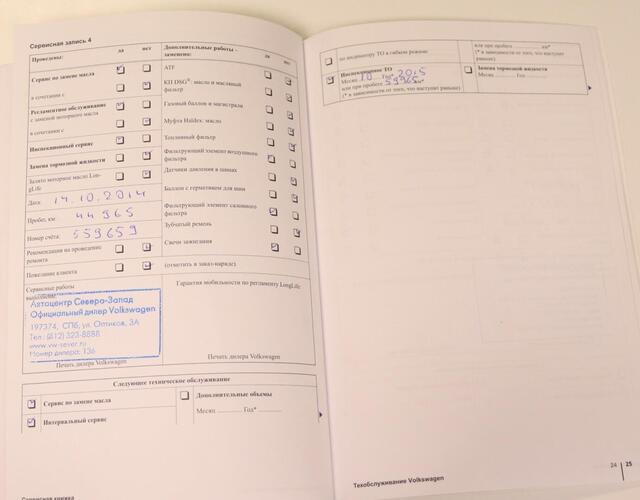 Сервисная запись 4
Проведены: да нет
Сервис по замене масла
в сочетании с
Регламентное обслуживание
с заменой моторного масла
в сочетании с
Инспекционный сервис
Замена тормозной жидкости
Залито моторное масло Lon-
gLife
Дата: 14.10.2014
Пробег, км: 44965
Номер счёта: 559659
Рекомендации на проведение
ремонта
Пожелание клиента
Сервисные работы
выполнены:
Автоцентр Северо-Запад
Официальный дилер Volkswagen
197374, СПб, ул. Оптиков, 3А
Тел.: (812) 323-8888
www.vw-sever.ru
Номер дилера: 136
Печать дилера Volkswagen
Дополнительные работы –
заменено: да нет
ATF
КП DSG®: масло и масляный
фильтр
Газовый баллон и магистрали
Муфта Haldex: масло
Топливный фильтр
Фильтрующий элемент воздушного
фильтра
Датчики давления в шинах
Баллон с герметиком для шин
Фильтрующий элемент салонного
фильтра
Зубчатый ремень
Свечи зажигания
(отметить в заказ-наряде)
Гарантия мобильности по регламенту LongLife
Печать дилера Volkswagen
Следующее техническое обслуживание
Сервис по замене масла
Интервальный сервис
Дополнительные объемы
Месяц Год*
Сервисная книжка
по индикатору ТО в гибком режиме
или при пробеге км*
(* в зависимости от того, что наступит
раньше)
Инспекционное ТО
Месяц 10 Год* 2015
или при пробеге 59965 км*
(* в зависимости от того, что наступит раньше)
Замена тормозной жидкости
Месяц Год
Техобслуживание Volkswagen
24 25